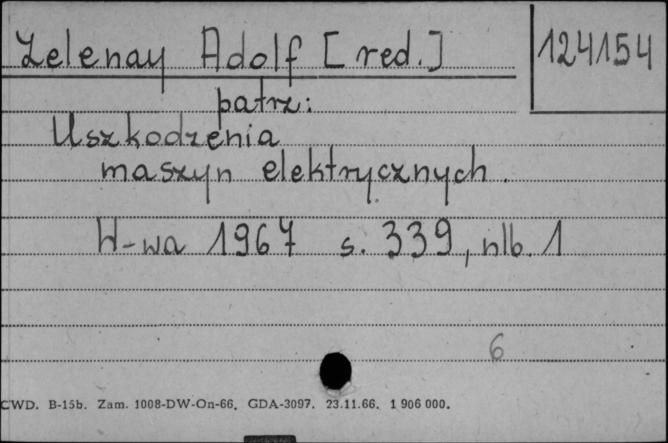 Zelenay Adolf [red.]
124154
patrz:
Uszkodzenia
maszyn elektrycznych.
W-wa 1967 s. 339, nlb. 1
6
CWD. B-15b. Zam. 1008-DW-On-66. GDA-3097. 23.11.66. 1 906 000.